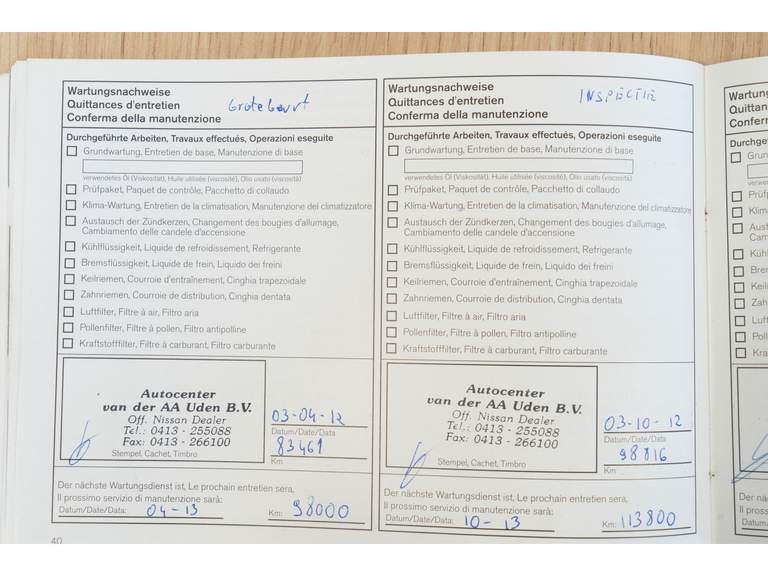 Wartungsnachweise
Quittances d'entretien
Conferma della manutenzione
Grote beurt
Durchgeführte Arbeiten, Travaux effectués, Operazioni eseguite
Grundwartung, Entretien de base, Manutenzione di base
verwendetes Öl (Viskosität), Huile utilisée (viscosité), Olio usato (viscosità)
Prüfpaket, Paquet de contrôle, Pacchetto di collaudo
Klima-Wartung, Entretien de la climatisation, Manutenzione del climatizzatore
Austausch der Zündkerzen, Changement des bougies d'allumage,
Cambiamento delle candele d'accensione
Kühlflüssigkeit, Liquide de refroidissement, Refrigerante
Bremsflüssigkeit, Liquide de frein, Liquido dei freini
Keilriemen, Courroie d'entraînement, Cinghia trapezoidale
Zahnriemen, Courroie de distribution, Cinghia dentata
Luftfilter, Filtre à air, Filtro aria
Pollenfilter, Filtre à pollen, Filtro antipolline
Kraftstofffilter, Filtre à carburant, Filtro carburante
Autocenter
van der AA Uden B.V.
Off. Nissan Dealer
Tel.: 0413 - 255088
Fax: 0413 - 266100
Stempel, Cachet, Timbro
03-04-12
Datum/Date/Data
83461
Km
Der nächste Wartungsdienst ist, Le prochain entretien sera,
Il prossimo servizio di manutenzione sarà:
Datum/Date/Data: 04-13 Km: 98000
40
Wartungsnachweise
Quittances d'entretien
Conferma della manutenzione
INSPECTIE
Durchgeführte Arbeiten, Travaux effectués, Operazioni eseguite
Grundwartung, Entretien de base, Manutenzione di base
verwendetes Öl (Viskosität), Huile utilisée (viscosité), Olio usato (viscosità)
Prüfpaket, Paquet de contrôle, Pacchetto di collaudo
Klima-Wartung, Entretien de la climatisation, Manutenzione del climatizzatore
Austausch der Zündkerzen, Changement des bougies d'allumage,
Cambiamento delle candele d'accensione
Kühlflüssigkeit, Liquide de refroidissement, Refrigerante
Bremsflüssigkeit, Liquide de frein, Liquido dei freini
Keilriemen, Courroie d'entraînement, Cinghia trapezoidale
Zahnriemen, Courroie de distribution, Cinghia dentata
Luftfilter, Filtre à air, Filtro aria
Pollenfilter, Filtre à pollen, Filtro antipolline
Kraftstofffilter, Filtre à carburant, Filtro carburante
Autocenter
van der AA Uden B.V.
Off. Nissan Dealer
Tel.: 0413 - 255088
Fax: 0413 - 266100
Stempel, Cachet, Timbro
03-10-12
Datum/Date/Data
98816
Km
Der nächste Wartungsdienst ist, Le prochain entretien sera,
Il prossimo servizio di manutenzione sarà:
Datum/Date/Data: 10-13 Km: 113800